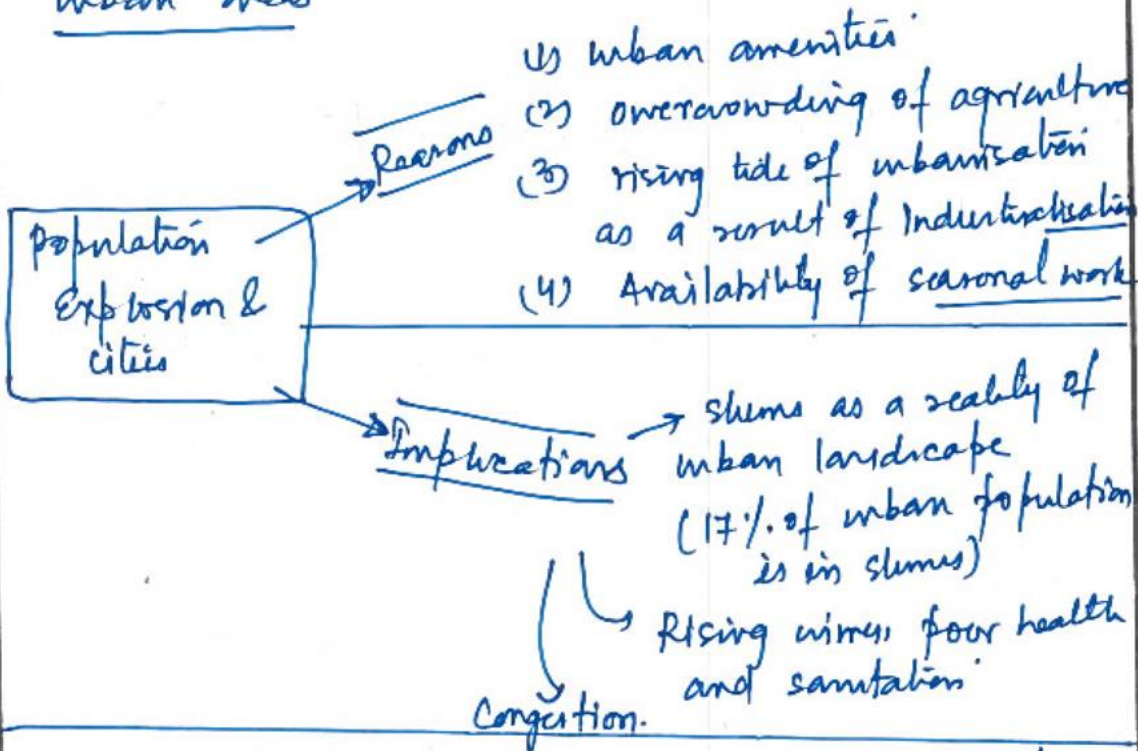 urban areas
Population
Explosion &
cities
Reasons
(1) urban amenities
(2) overcrowding of agriculture
(3) rising tide of urbanisation
as a result of Industrialisation
(4) Availability of seasonal work
Implications
→ slums as a reality of
urban landscape
(17% of urban population
is in slums)
Rising crimes, poor health
and sanitation
Congestion.